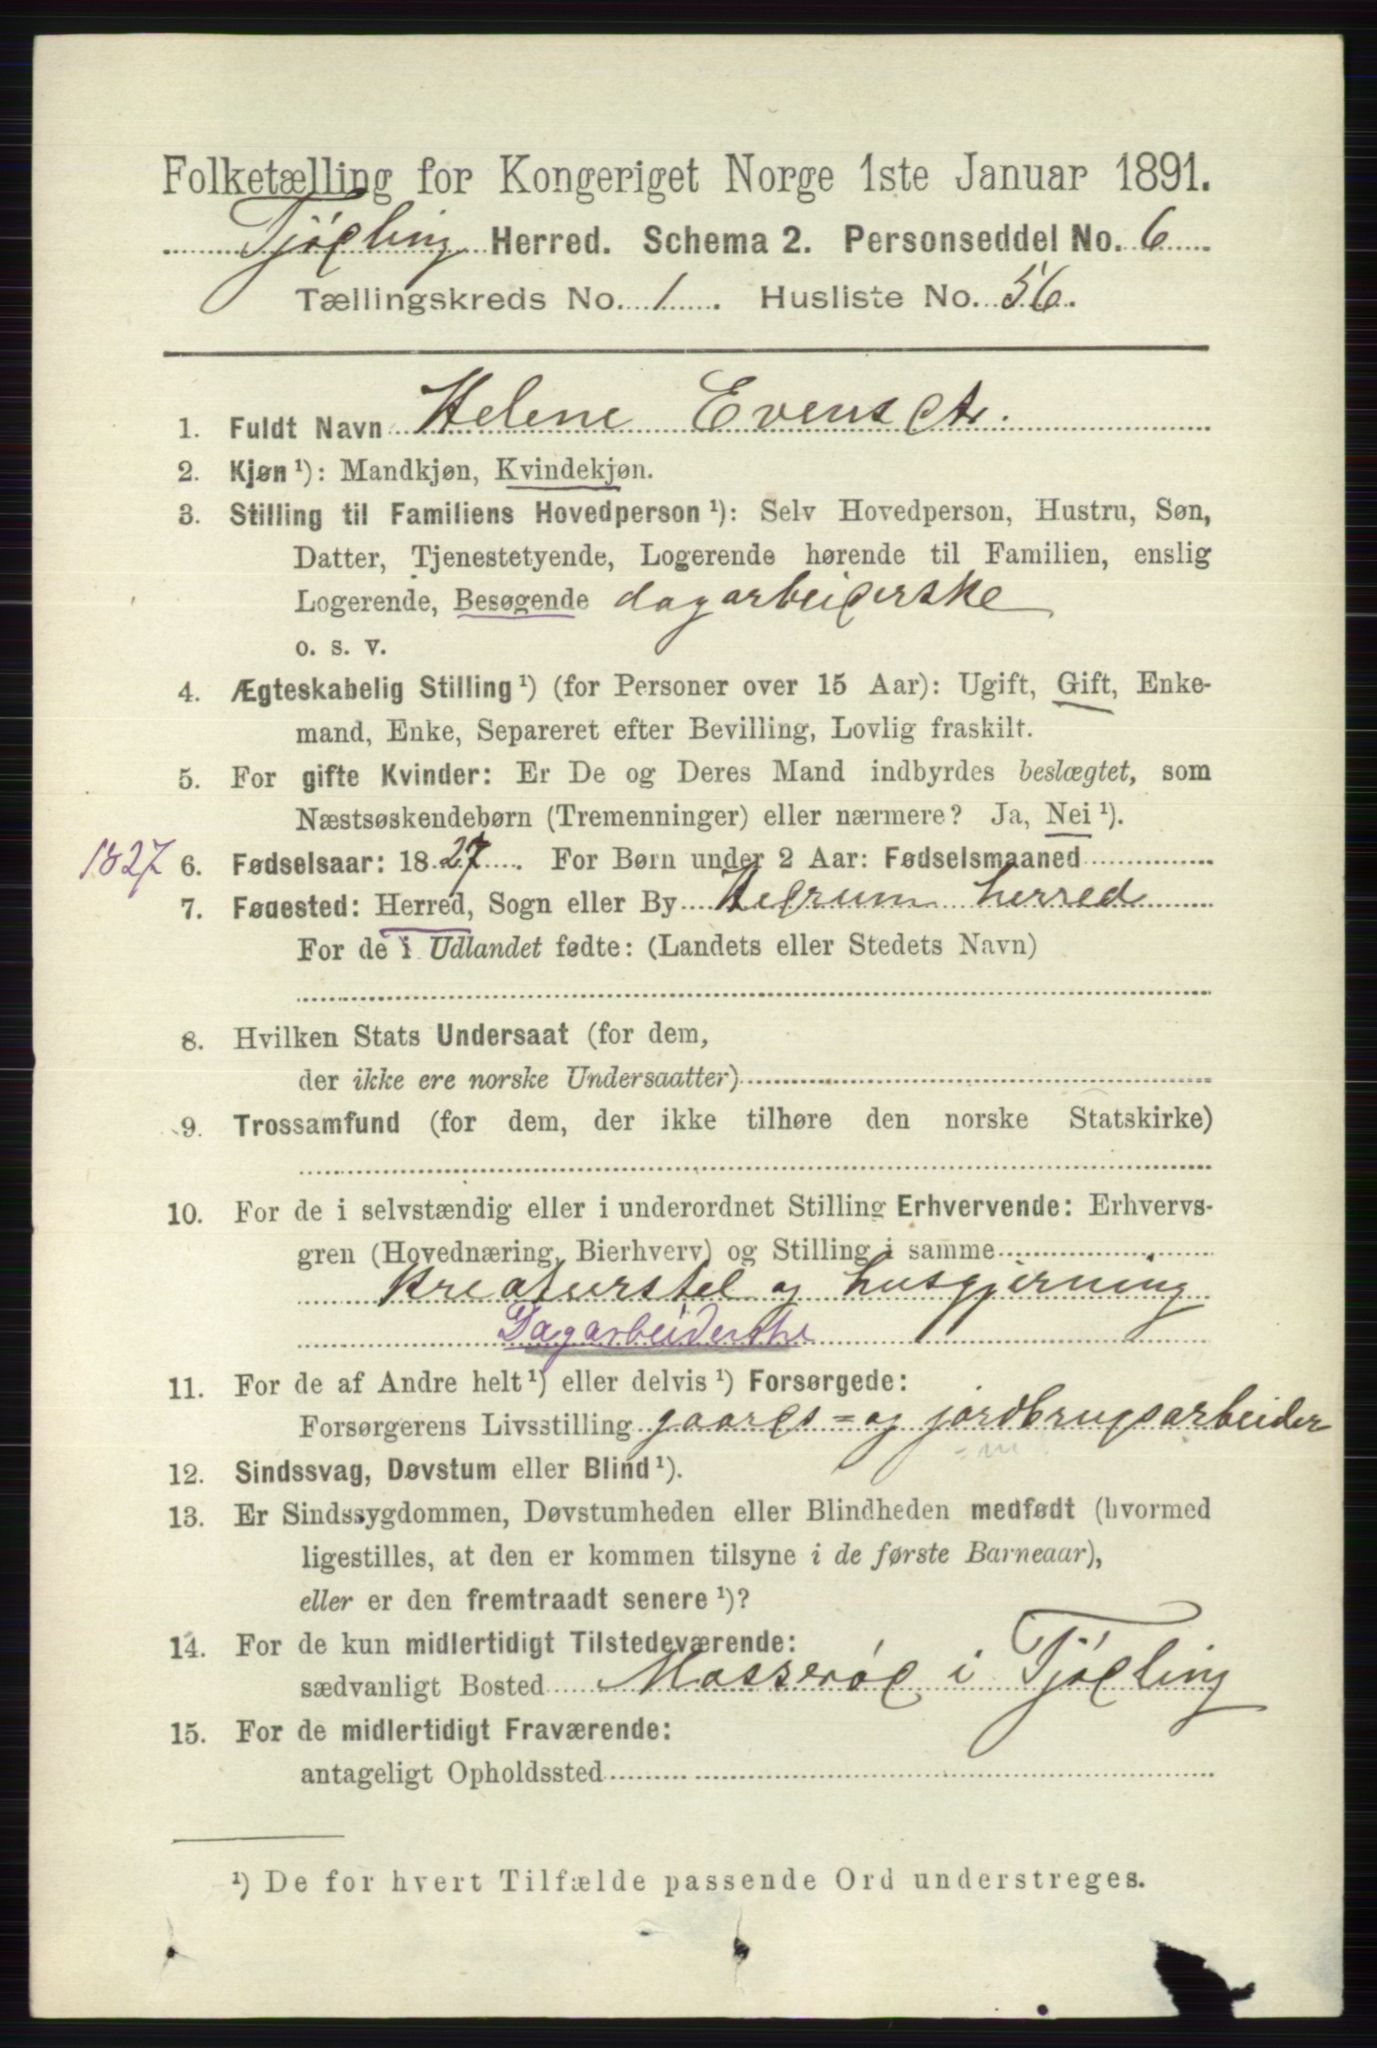 Folketælling for Kongeriget Norge 1ste Januar 1891.
Tjødling Herred. Schema 2. Personseddel No. 6
Tællingskreds No. 1. Husliste No. 56.
1. Fuldt Navn Helene Evensdtr.
2. Kjøn ¹): Mandkjøn, Kvindekjøn.
3. Stilling til Familiens Hovedperson ¹): Selv Hovedperson, Hustru, Søn,
Datter, Tjenestetyende, Logerende hørende til Familien, enslig
Logerende, Besøgende dagarbeiderske
o. s. v.
4. Ægteskabelig Stilling ¹) (for Personer over 15 Aar): Ugift, Gift, Enke-
mand, Enke, Separeret efter Bevilling, Lovlig fraskilt.
5. For gifte Kvinder: Er De og Deres Mand indbyrdes beslægtet, som
Næstsøskendebørn (Tremenninger) eller nærmere? Ja, Nei ¹).
1827 6. Fødselsaar: 1827. For Børn under 2 Aar: Fødselsmaaned
7. Fødested: Herred, Sogn eller By Hedrum herred
For de i Udlandet fødte: (Landets eller Stedets Navn)
8. Hvilken Stats Undersaat (for dem,
der ikke ere norske Undersaatter)
9. Trossamfund (for dem, der ikke tilhøre den norske Statskirke)
10. For de i selvstændig eller i underordnet Stilling Erhvervende: Erhvervs-
gren (Hovednæring, Bierhverv) og Stilling i samme
Kreaturstel og husgjerning
Dagarbeiderske
11. For de af Andre helt ¹) eller delvis ¹) Forsørgede:
Forsørgerens Livsstilling gaards- og jordbrugsarbeider
12. Sindssvag, Døvstum eller Blind ¹).
13. Er Sindssygdommen, Døvstumheden eller Blindheden medfødt (hvormed
ligestilles, at den er kommen tilsyne i de første Barneaar),
eller er den fremtraadt senere ¹)?
14. For de kun midlertidigt Tilstedeværende:
sædvanligt Bosted Masserød i Tjødling
15. For de midlertidigt Fraværende:
antageligt Opholdssted
¹) De for hvert Tilfælde passende Ord understreges.